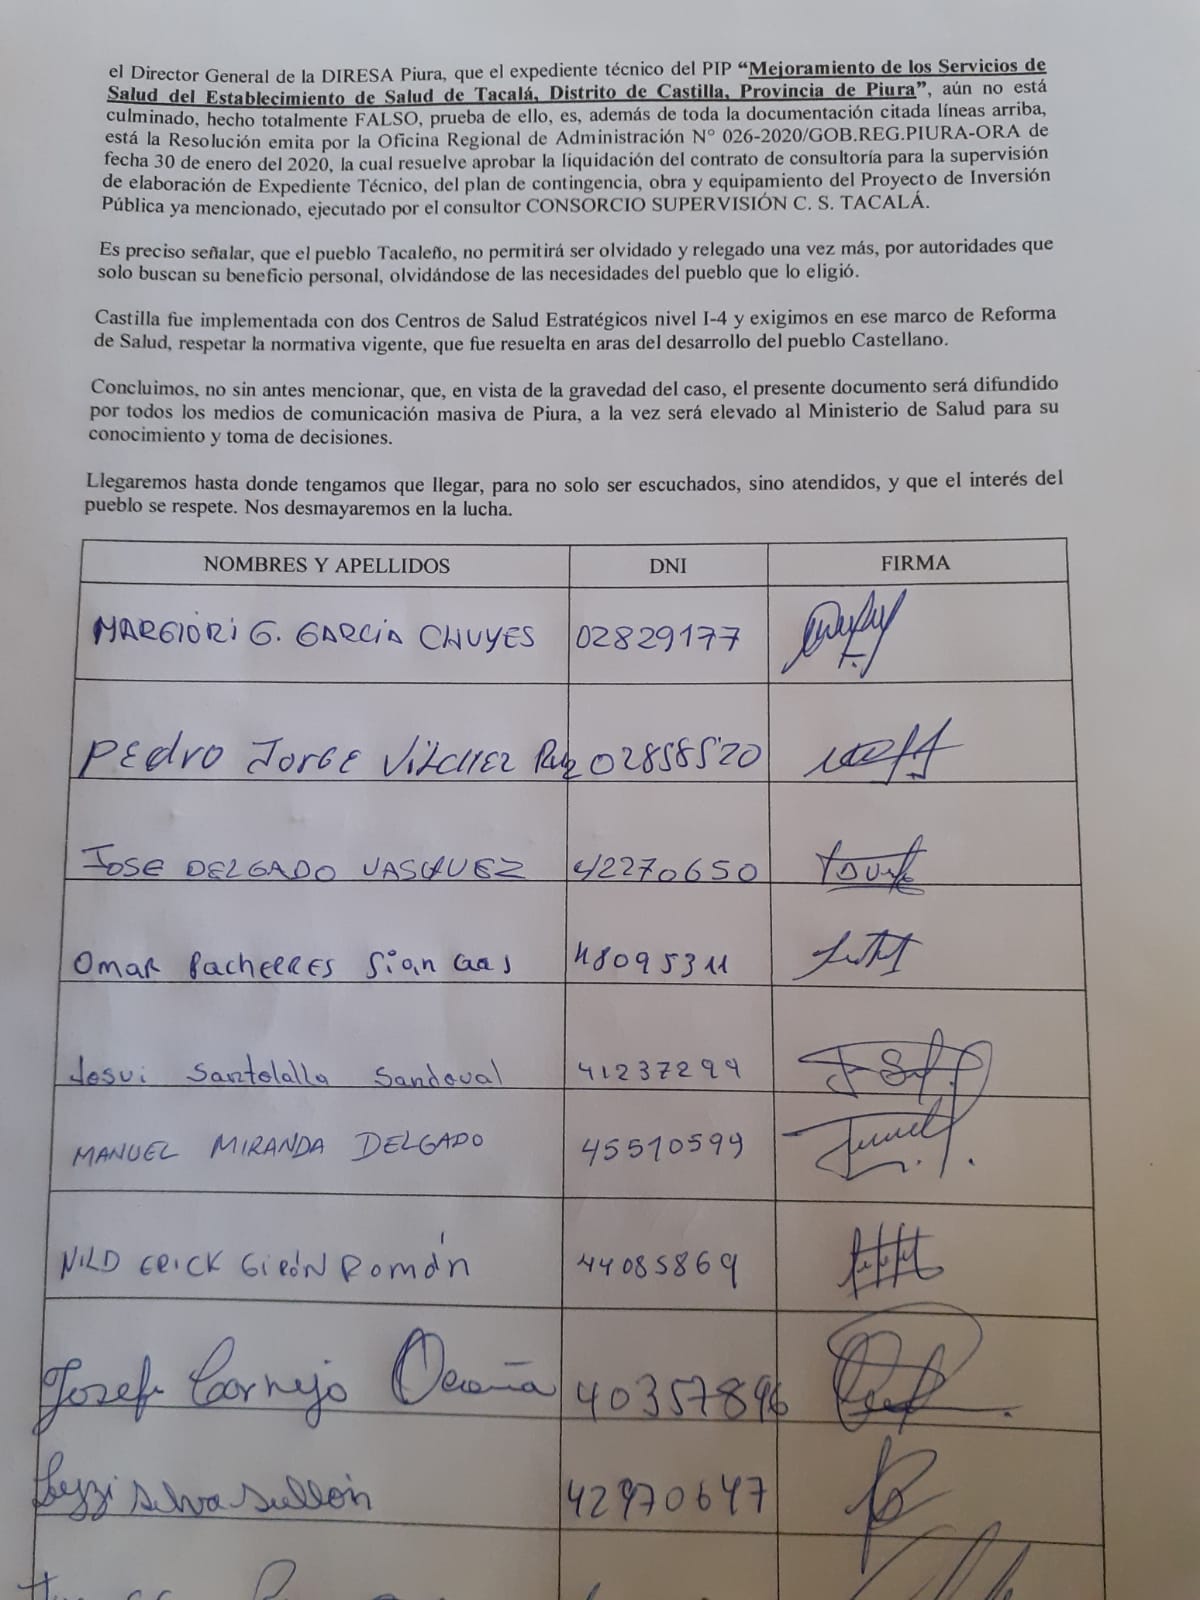 el Director General de la DIRESA Piura, que el expediente técnico del PIP “Mejoramiento de los Servicios de
Salud del Establecimiento de Salud de Tacalá, Distrito de Castilla, Provincia de Piura”, aún no está
culminado, hecho totalmente FALSO, prueba de ello, es, además de toda la documentación citada líneas arriba,
está la Resolución emita por la Oficina Regional de Administración N° 026-2020/GOB.REG.PIURA-ORA de
fecha 30 de enero del 2020, la cual resuelve aprobar la liquidación del contrato de consultoría para la supervisión
de elaboración de Expediente Técnico, del plan de contingencia, obra y equipamiento del Proyecto de Inversión
Pública ya mencionado, ejecutado por el consultor CONSORCIO SUPERVISIÓN C. S. TACALÁ.
Es preciso señalar, que el pueblo Tacaleño, no permitirá ser olvidado y relegado una vez más, por autoridades que
solo buscan su beneficio personal, olvidándose de las necesidades del pueblo que lo eligió.
Castilla fue implementada con dos Centros de Salud Estratégicos nivel I-4 y exigimos en ese marco de Reforma
de Salud, respetar la normativa vigente, que fue resuelta en aras del desarrollo del pueblo Castellano.
Concluimos, no sin antes mencionar, que, en vista de la gravedad del caso, el presente documento será difundido
por todos los medios de comunicación masiva de Piura, a la vez será elevado al Ministerio de Salud para su
conocimiento y toma de decisiones.
Llegaremos hasta donde tengamos que llegar, para no solo ser escuchados, sino atendidos, y que el interés del
pueblo se respete. Nos desmayaremos en la lucha.
NOMBRES Y APELLIDOS DNI FIRMA
MARGIORI G. GARCÍA CHUYES 02829177
PEdro JorGE VilCHEZ Ruiz 02858520
JOSE DELGADO VASQUEZ 42270650
Omar PacHERRES 48095311
Josui Santolalla Sandoval 41237299
MANUEL MIRANDA DELGADO 45510599
NILD ERICK GIRÓN Román 44085869
Josef Cornejo Ocaña 40357896
Leyzi Silva Sullón 42970647